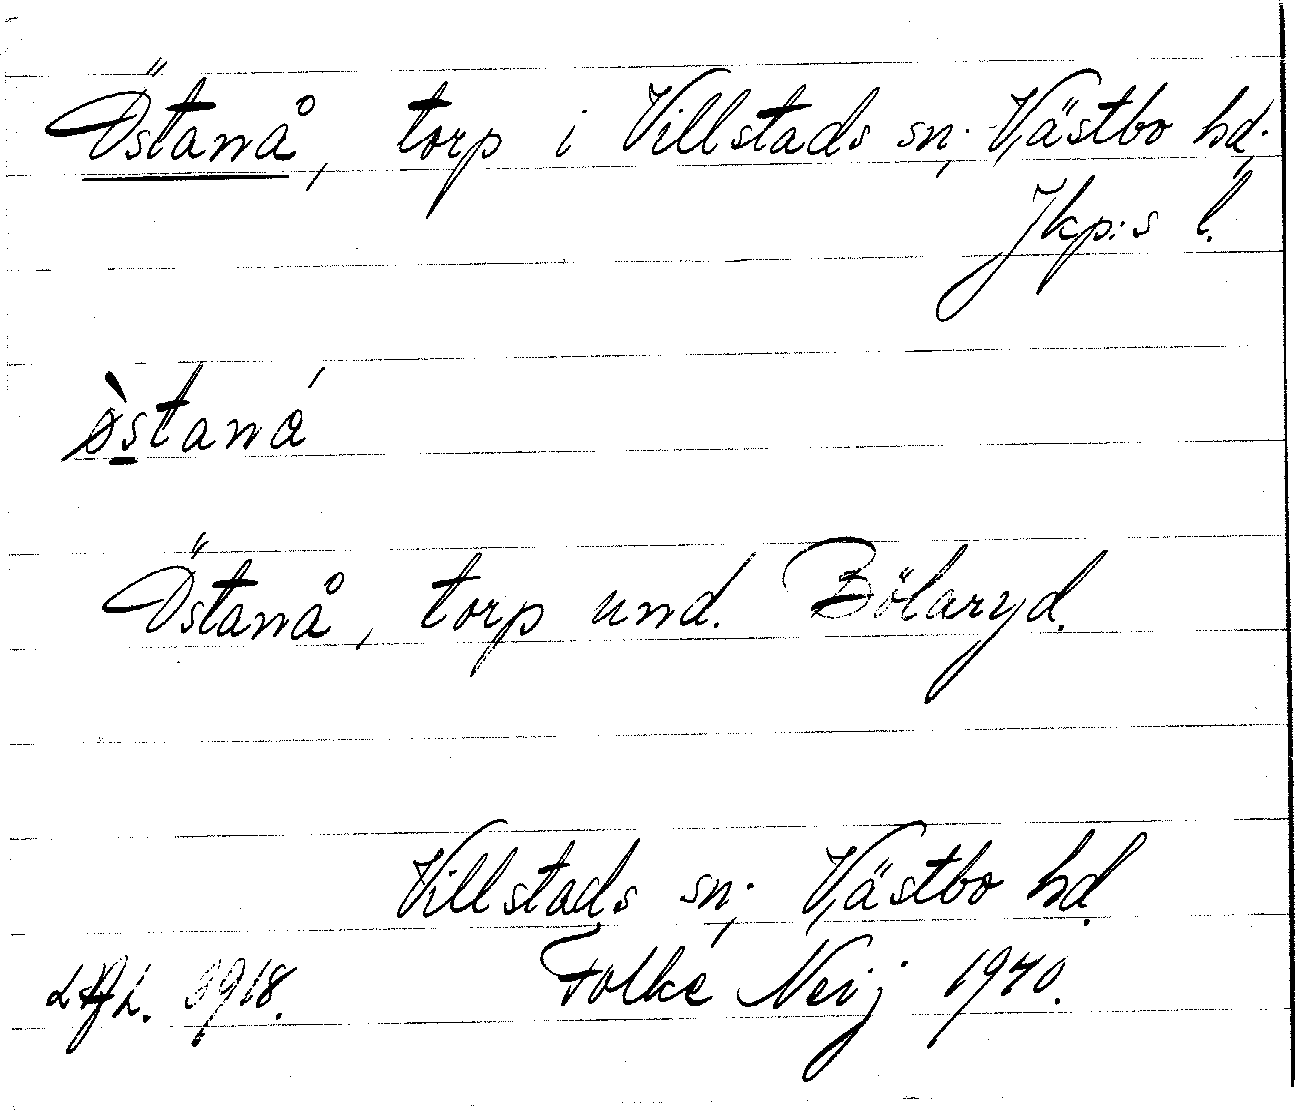 Östanå, torp i Villstads sn; Västbo hd;
Jkp:s l.
Östanå, torp und. Bölaryd.
Villstads sn; Västbo hd.
Folke Neij 1940.